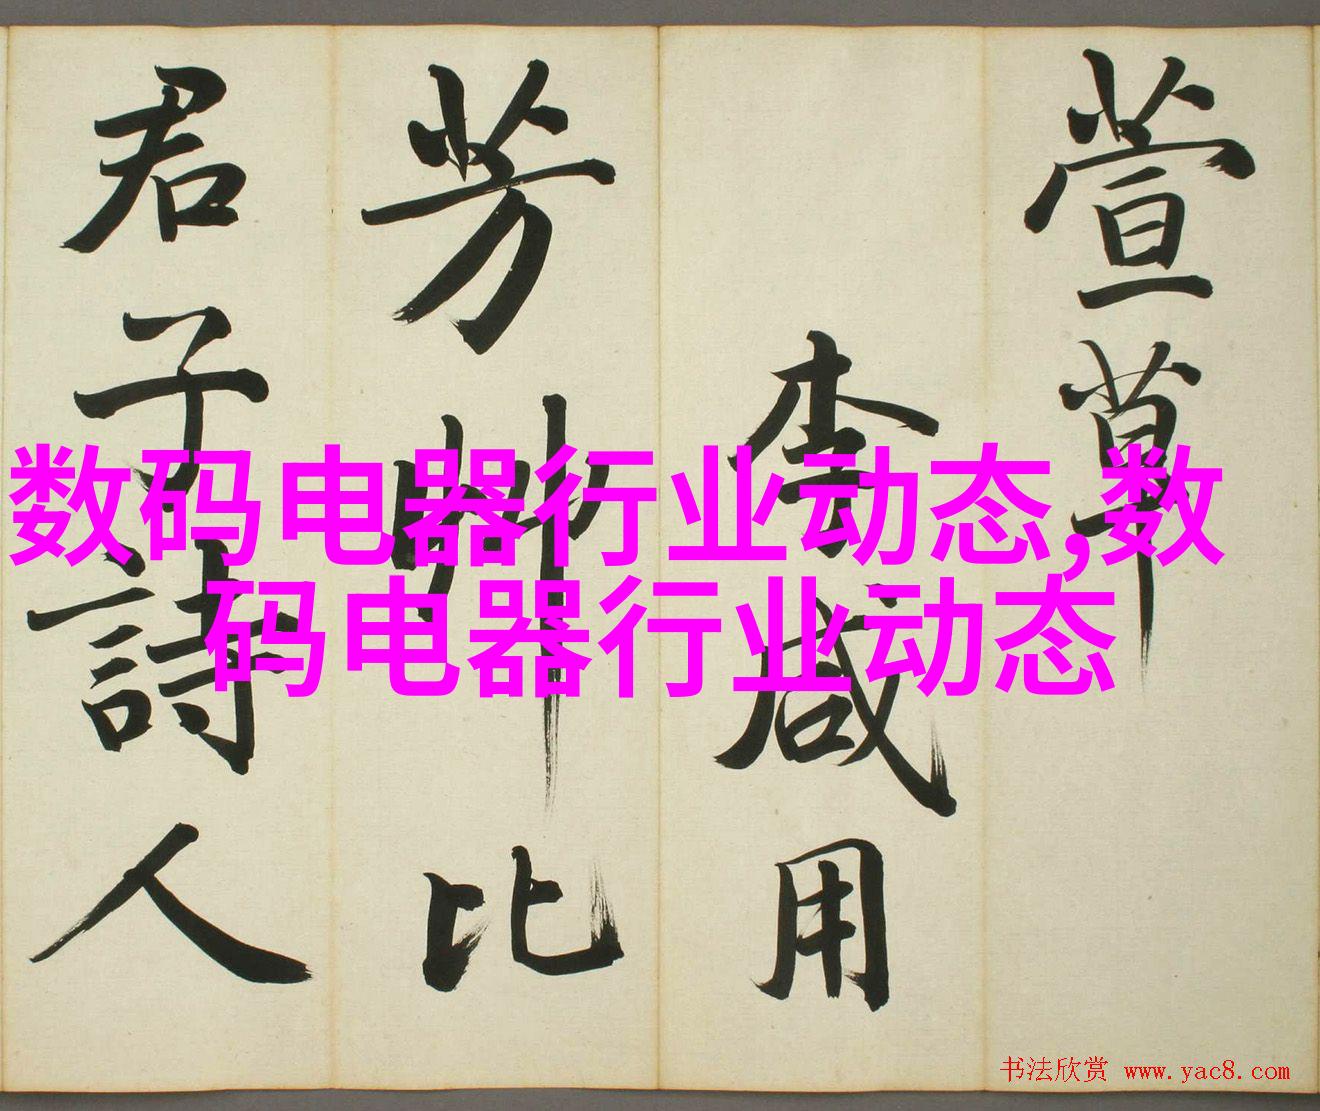 萱草
李咸用
芳艸比
君子詩人
数码电器行业动态,数
码电器行业动态
书法欣赏 www.yac8.com